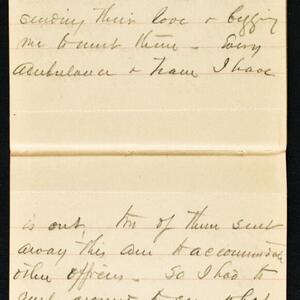 sending their love & begging
me to meet them - Every
Ambulance & team I have
is out, two of them sent
away this am to accommodate
other officers. So I had to